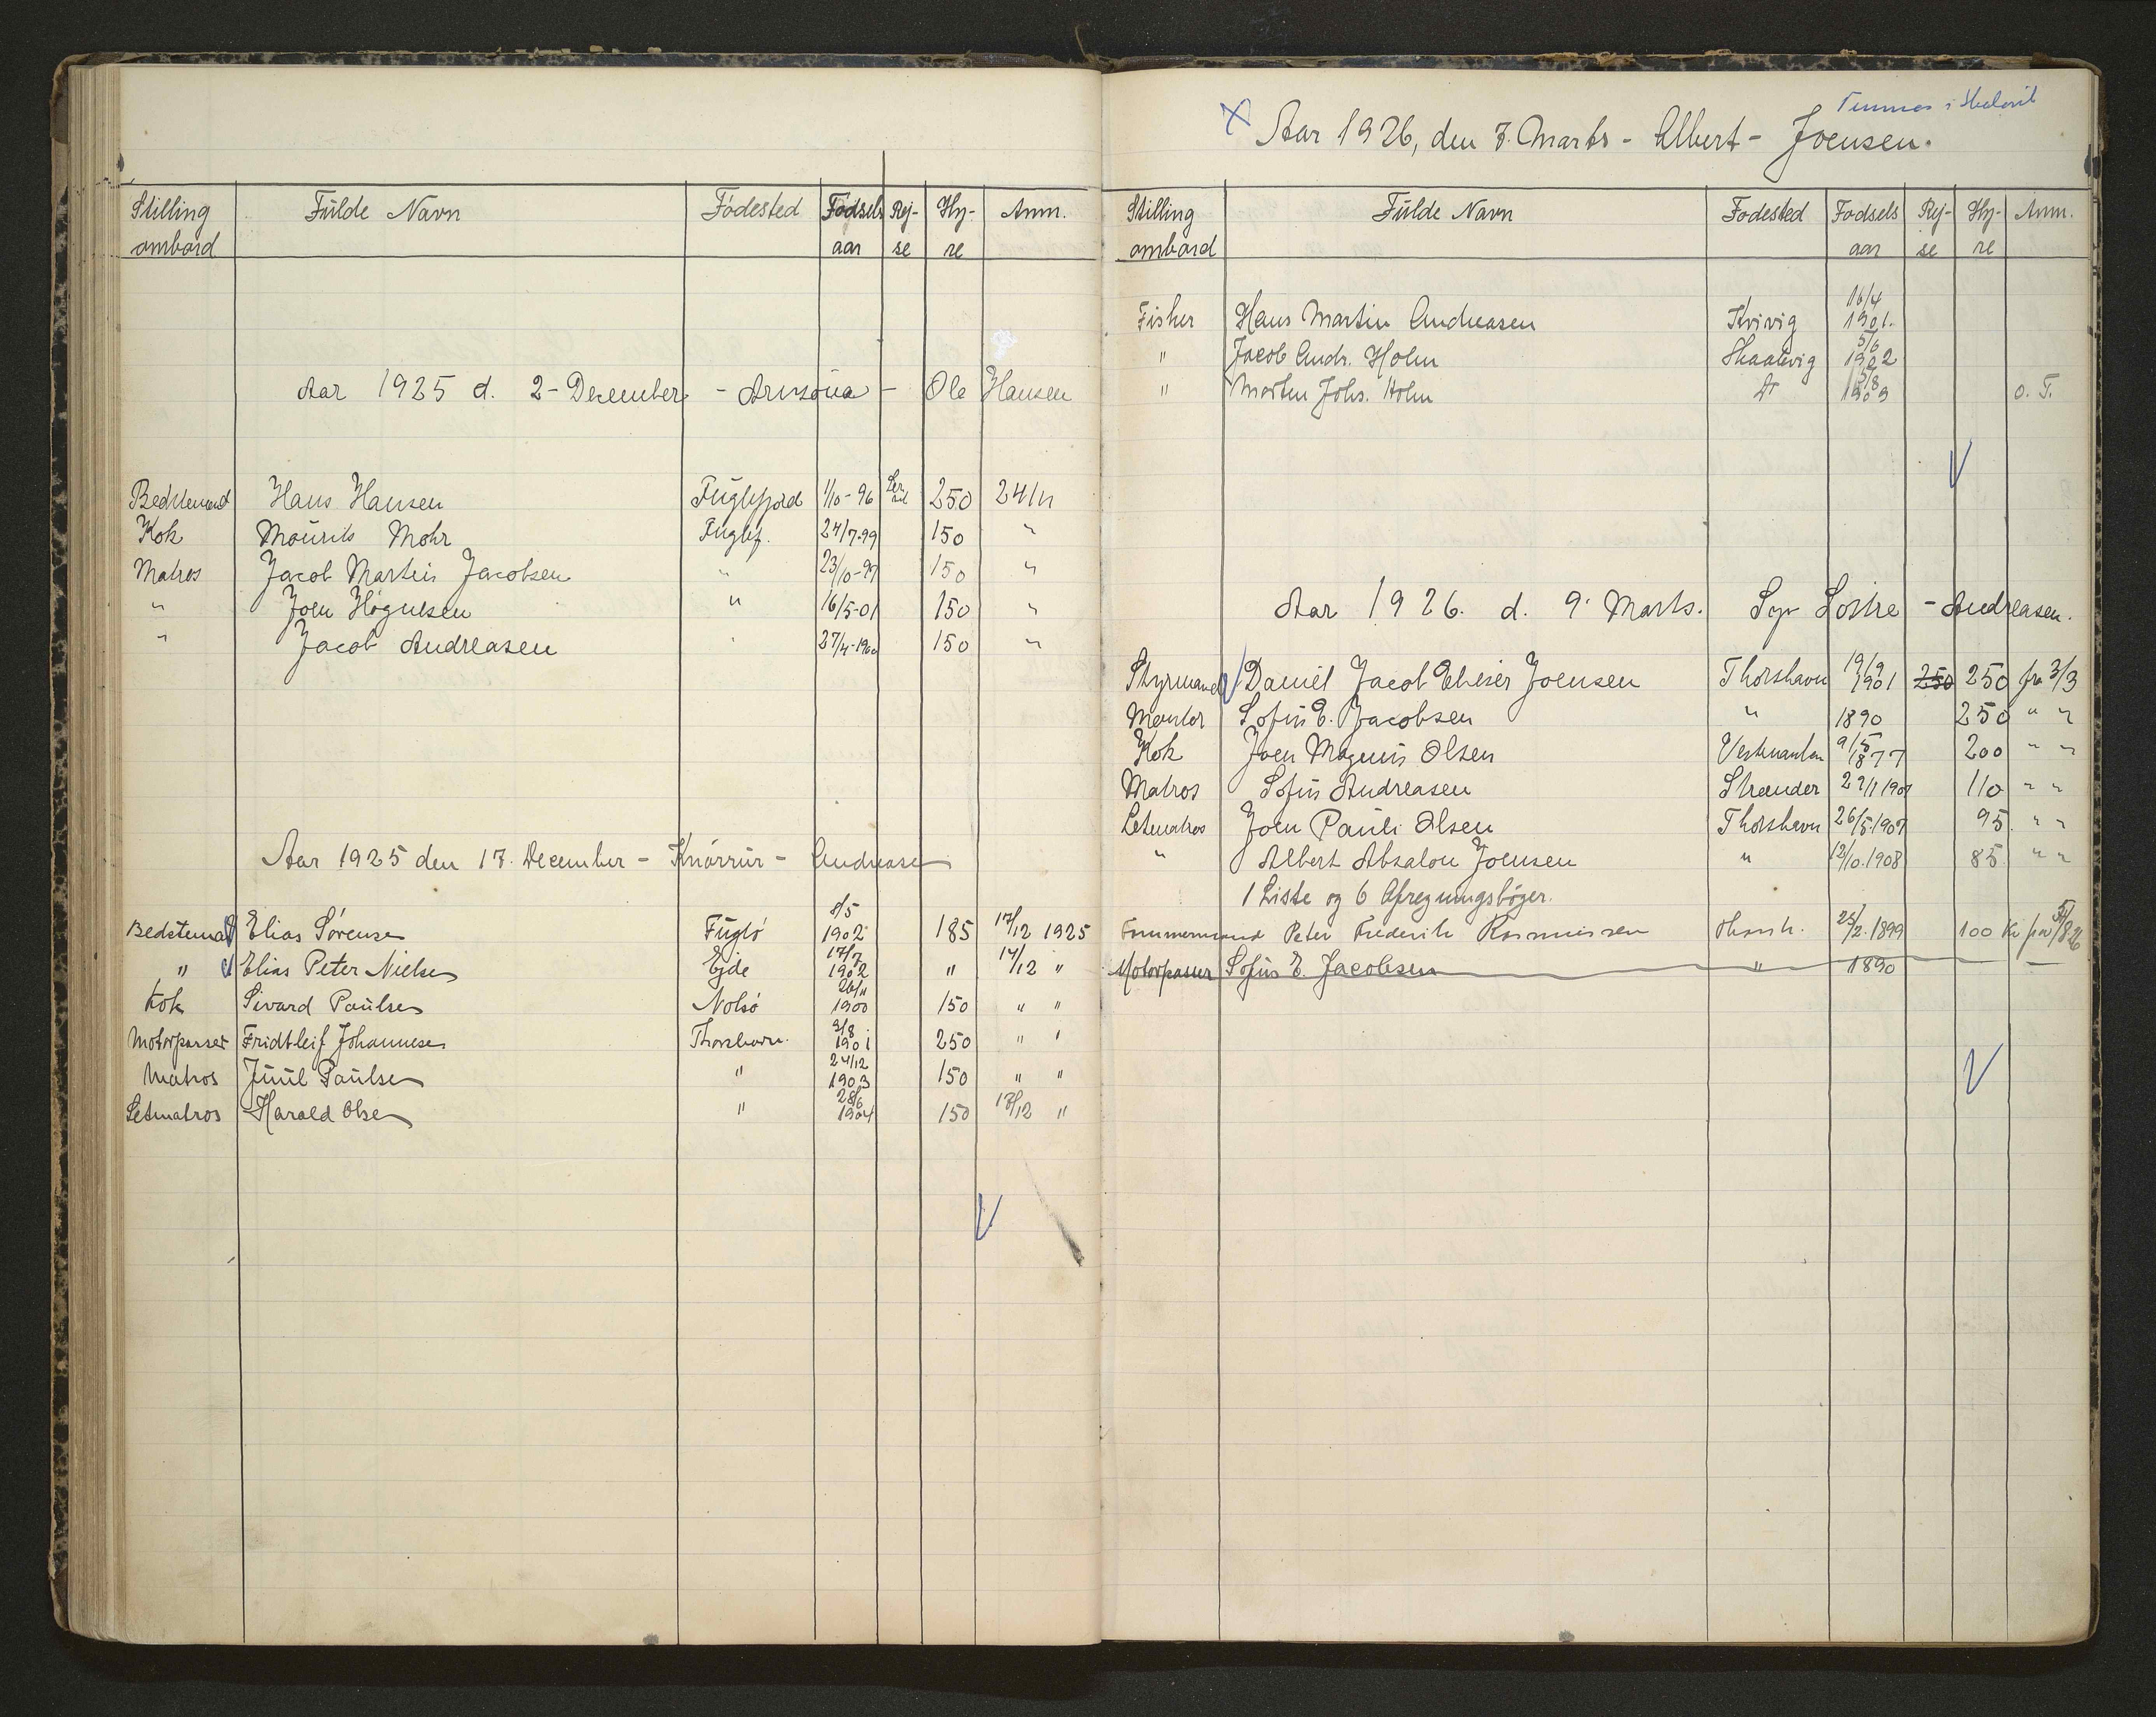 Stilling ombord Fulde Navn Fødested Fødsels aar Rej- se Hy- re Anm.
Aar 1925 d. 2 - December - - Ole Hansen
Bedstemand Hans Hansen Fuglefjord 1/10-96 250 24/11
Kok Mourits Mohr Euglf. 24/7.99 150 "
Matros Jacob Martin Jacobsen " 23/10-99 150 "
" Joen Høgnesen " 16/5-01 150 "
" Jacob Andreasen " 27/4-1900 150 "
Aar 1925 den 17. December - Knørrur - Andreasen
Bedstemand Elias Sørensen Fuglø 8/5 1902 185 17/12 1925
" Elias Peter Nielsen Ejde 17/7 1902 " 17/12 "
Kok Sivard Paulsen Nolsø 26/11 1900 150 " "
Motorpasser Fridtleif Johannesen Thorshavn. 3/8 1901 250 " "
Matros Juul Paulsen " 24/12 1903 150 " "
Letmatros Harald Olsen " 28/6 1904 150 17/12 "
i
X Aar 1926, den 7. Marts - Albert - Joensen.
Stilling ombord Fulde Navn Fodested Fodsels aar Rej- se Hy- re Anm.
Fisher Hans Martin Andreasen Kvivig 16/4 1901.
" Jacob Andr. Holm Skaalevig 5/6 1902
" Morten Johs. Holm 5/8 1909 o. T.
Aar 1926. d. 9. Marts. Andreasen.
Styrmand Daniel Jacob Elieser Joensen Thorshavn 19/9 1901 250 250 fra 3/3
Sofus E. Jacobsen " 1890 250 " "
Kok Joen Magnus Olsen Vestmanhavn 9/5 1877 200 " "
Matros Sofus Andreasen Strænder 110 " "
Letmatros Joen Pauli Olsen Thorshavn 26/5.1907 95 " "
" Albert Absalon Joensen " 12/10.1908 85 " "
1 Liste og 6 Afregningsbøger.
Tømmermand Peter Frederik Rasmussen Thorsh. 25/2.1899 100 Kr
Motorpasser Sofus E. Jacobsen " 1890